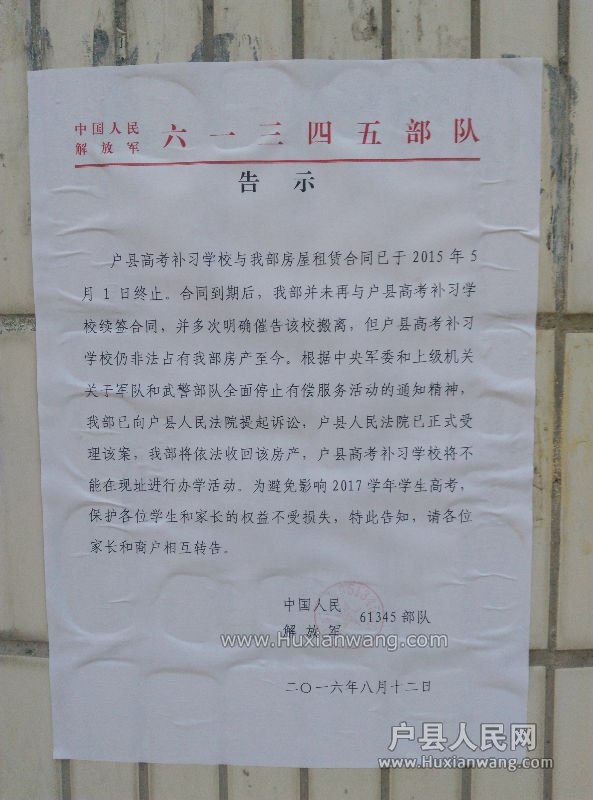 中国人民
解放军
六一三四五部队
告示
户县高考补习学校与我部房屋租赁合同已于2015年5
月1日终止。合同到期后，我部并未再与户县高考补习学
校续签合同，并多次明确催告该校搬离，但户县高考补习
学校仍非法占有我部房产至今。根据中央军委和上级机关
关于军队和武警部队全面停止有偿服务活动的通知精神，
我部已向户县人民法院提起诉讼，户县人民法院已正式受
理该案，我部将依法收回该房产，户县高考补习学校将不
能在现址进行办学活动。为避免影响2017学年学生高考，
保护各位学生和家长的权益不受损失，特此告知，请各位
家长和商户相互转告。
中国人民
解放军
61345部队
www.Huxianwang.com
二〇一六年八月十二日
户县人民网
www.Huxianwang.com